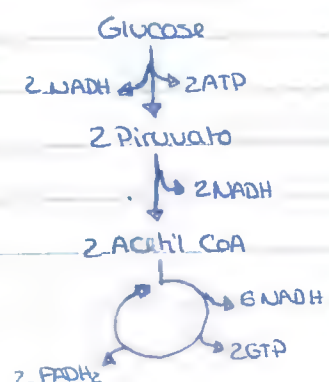 Glucose
2 NADH 2 ATP
2 Piruvato
2 NADH
2 Acetil CoA
6 NADH
2 GTP
2 FADH2